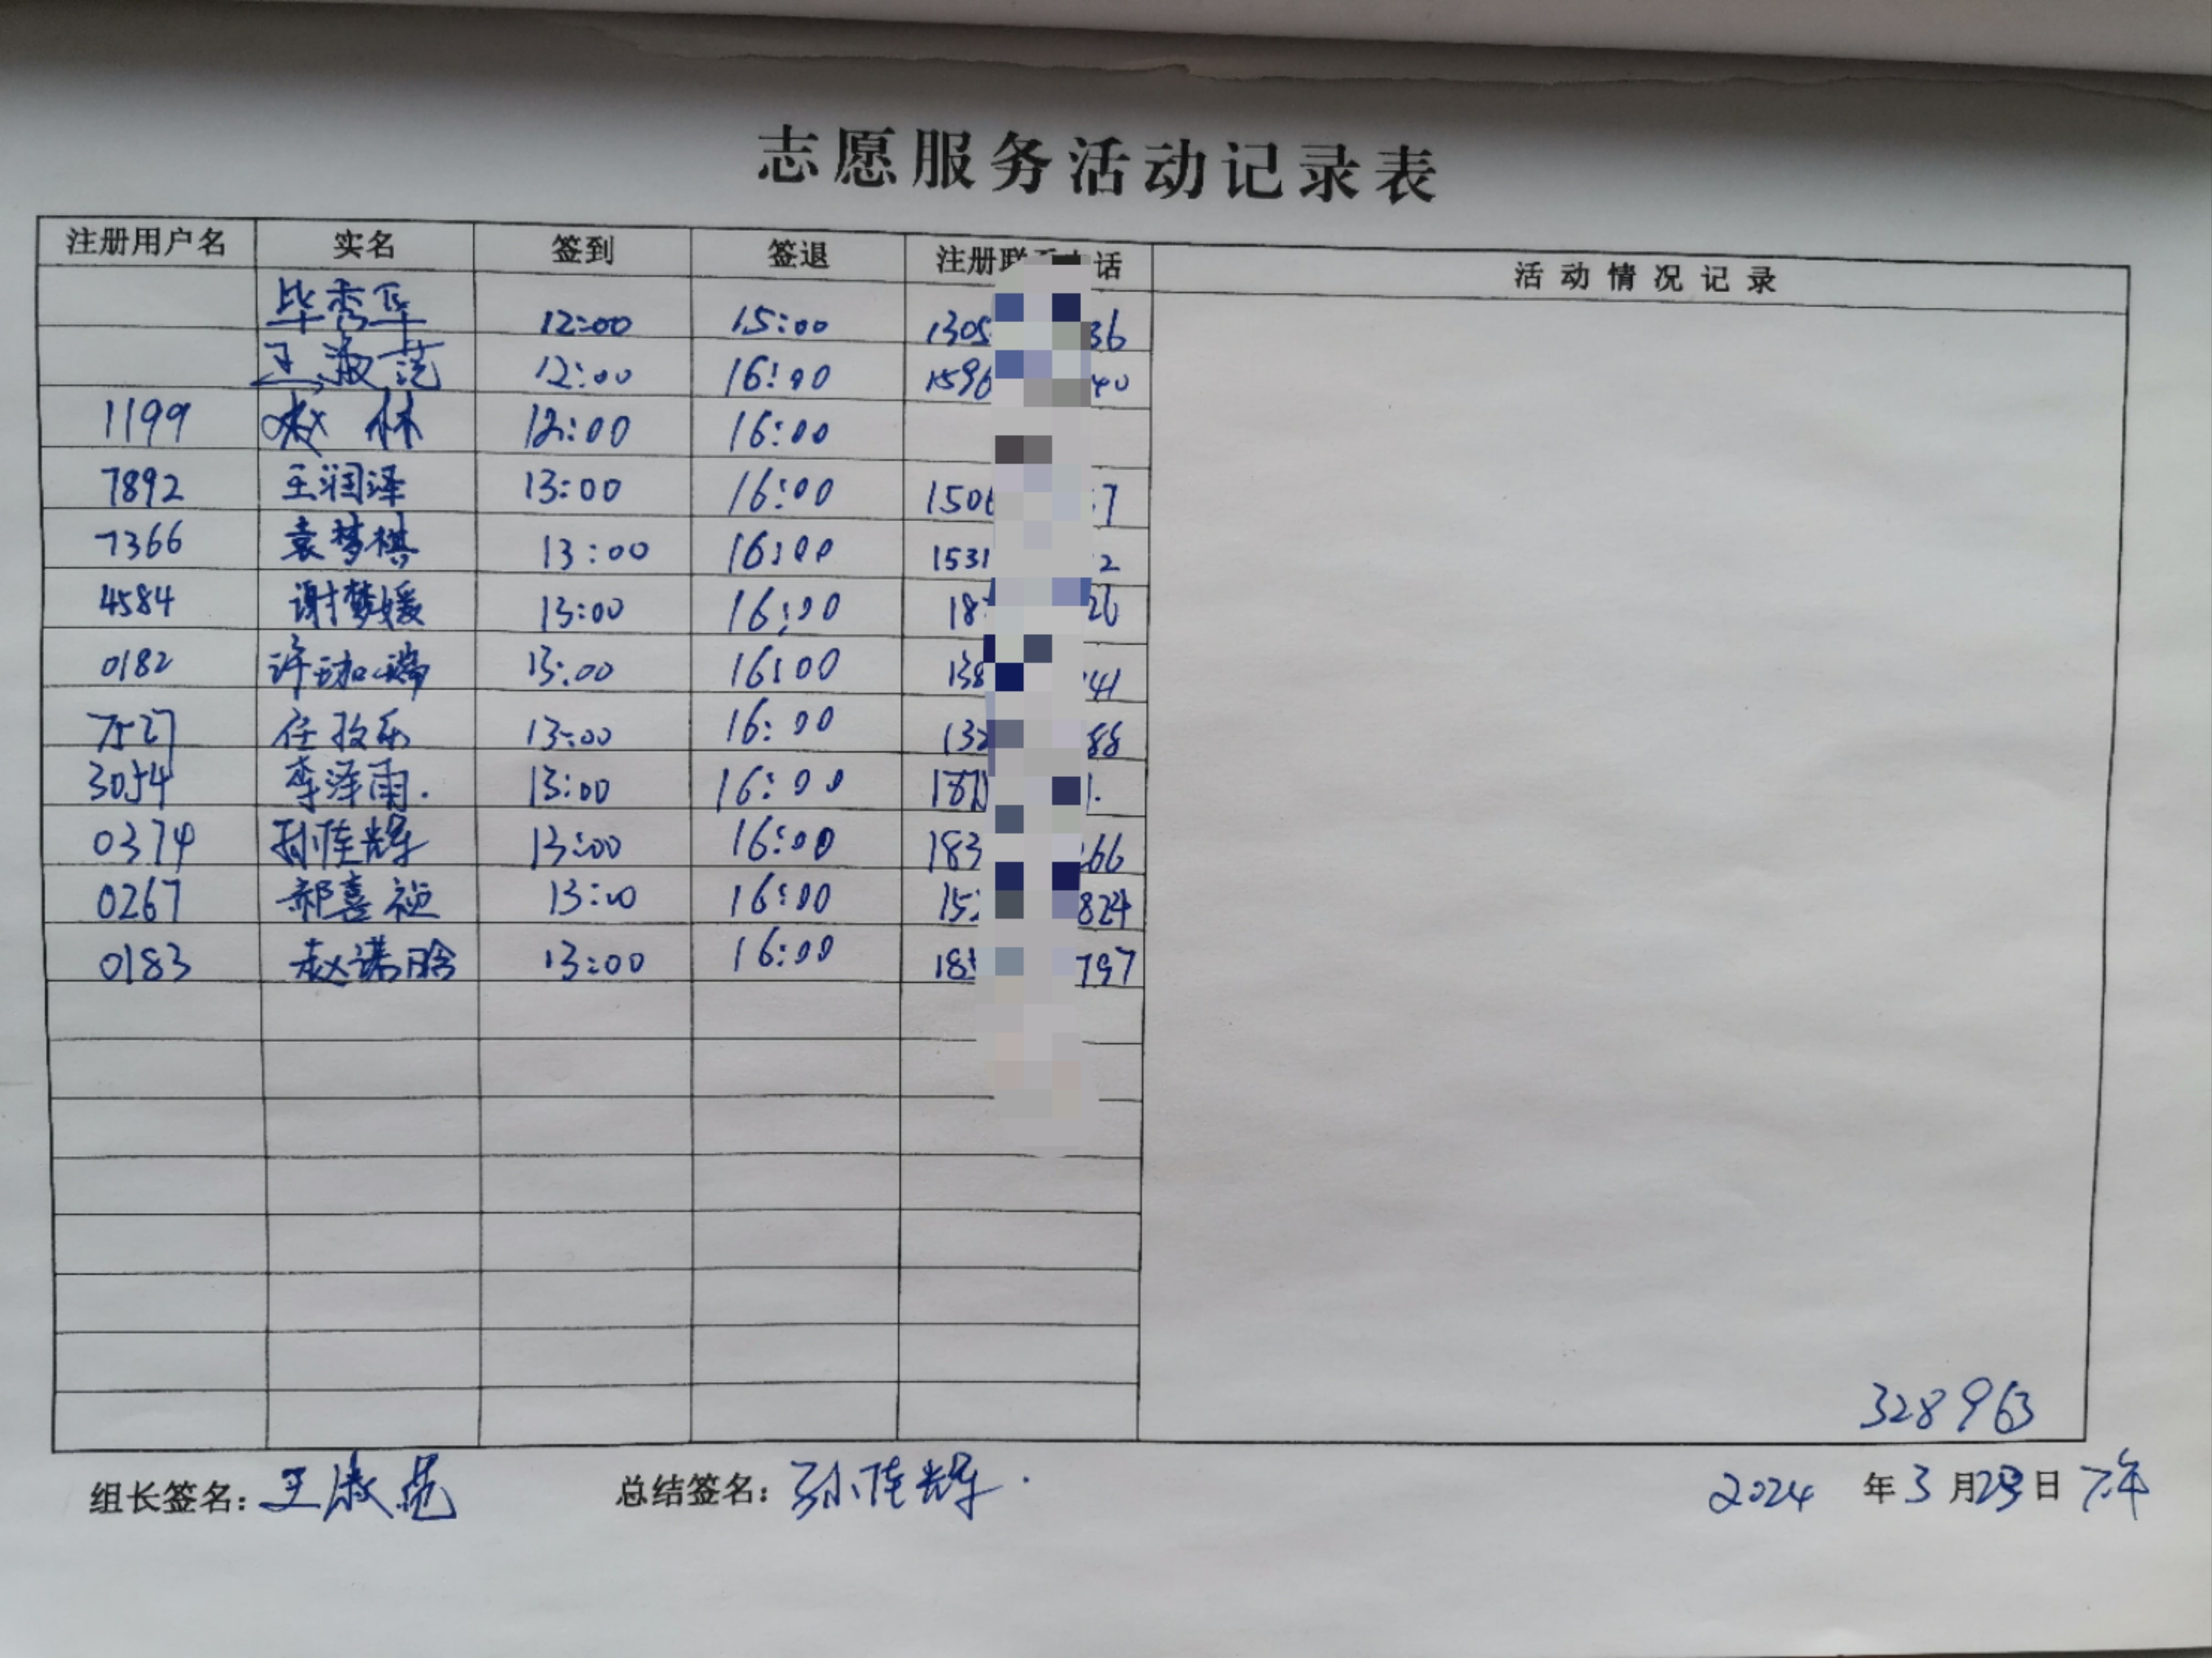 志愿服务活动记录表
注册用户名 实名 签到 签退 注册联 话 活动情况记录
毕秀华 12:00 15:00 1305 36
王淑苋 12:00 16:00 1596 40
1199 赵林 12:00 16:00
7892 王润泽 13:00 16:00 1506 7
7366 袁梦棋 13:00 16:00 1531 2
4584 谢梦媛 13:00 16:00 18 26
0182 许珈瑞 13:00 16:00 138 41
7527 任孜乐 13:00 16:00 132 88
3054 李泽雨. 13:00 16:00 187 1.
0374 孙佳辉 13:00 16:00 183 66
0267 郝喜祯 13:00 16:00 15 824
0183 赵诺晗 13:00 16:00 18 797
328963
组长签名: 王淑苋 总结签名: 孙佳辉. 2024 年 3 月 23 日 下午